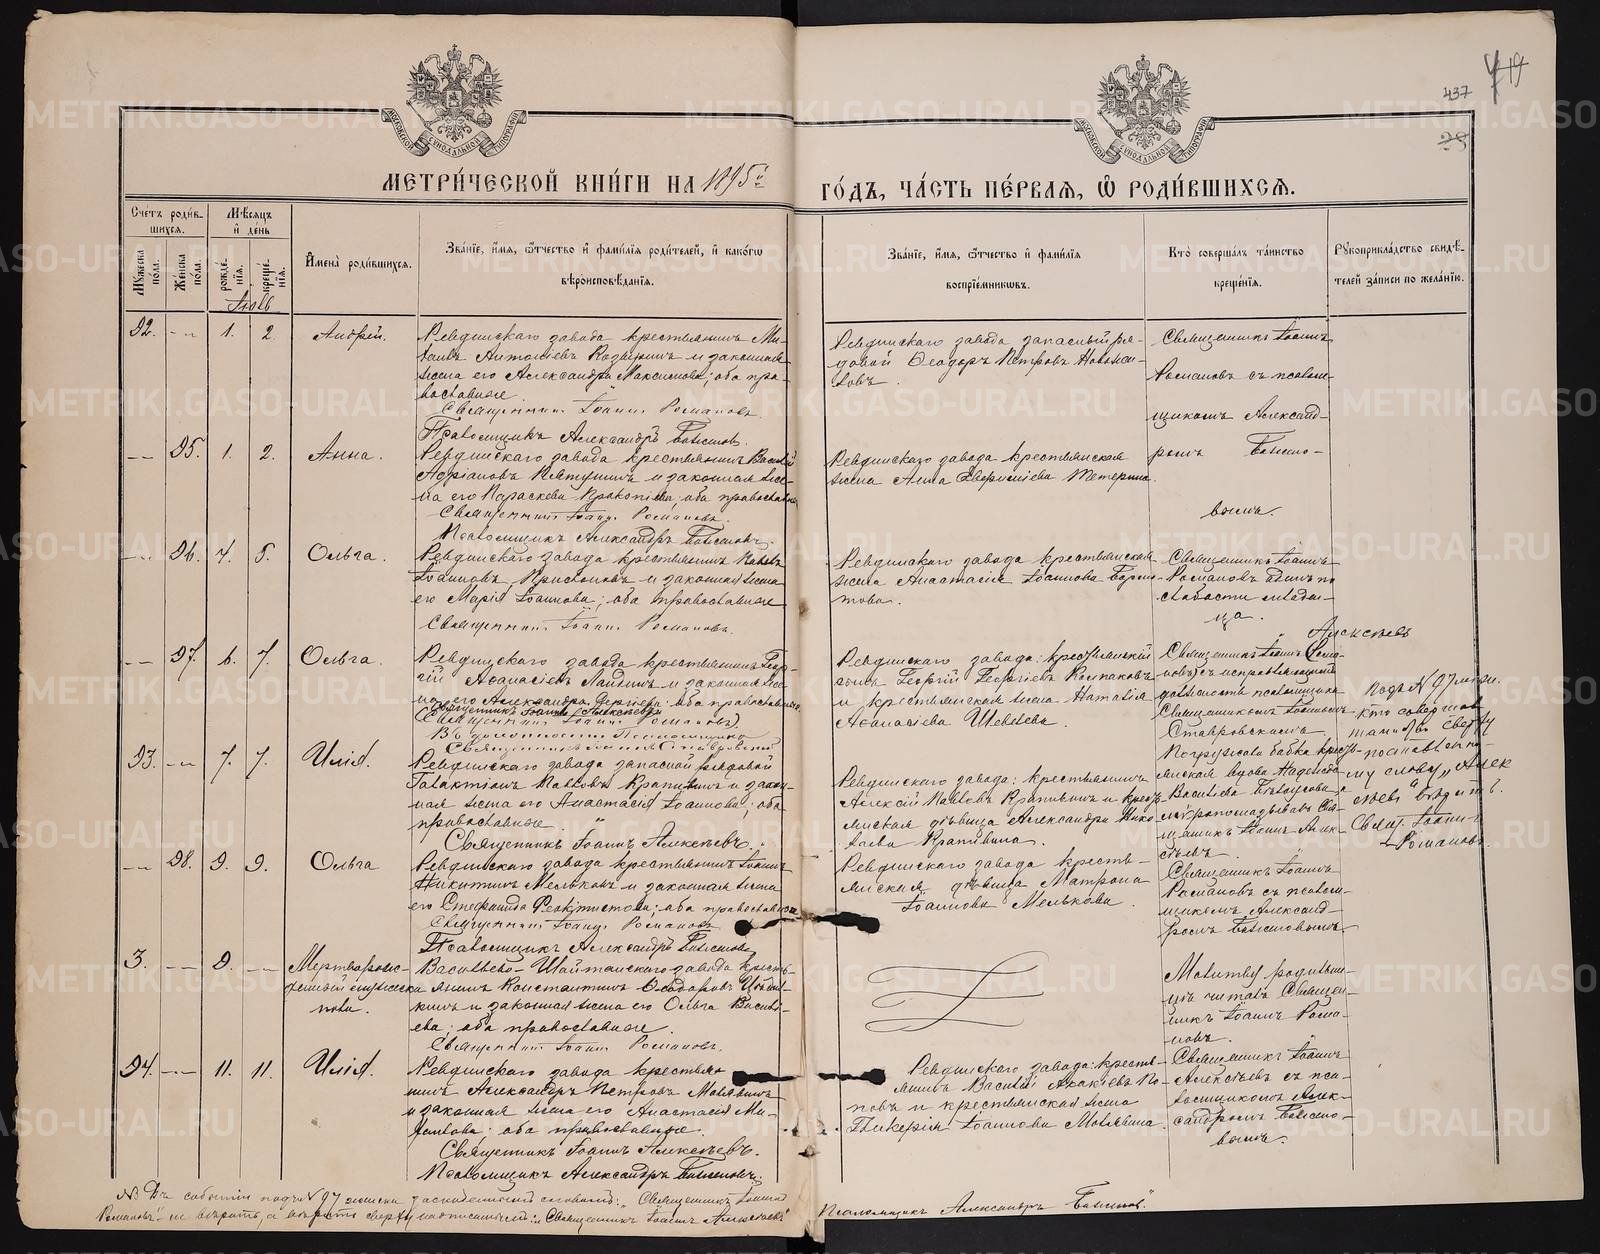 437
419
28
МЕТРИ́ЧЕСКОЙ КНИ́ГИ НА 1895й
ГО́ДЪ, ЧА́СТЬ ПЕ́РВАЯ, Ѽ РОДИ́ВШИХСЯ.
Сче́тъ роди́в-
шихся.
Мꙋ́жеска по́ла.
Же́нска по́ла.
Мѣ́сяцъ
и҆ де́нь
рожде́нїя.
креще́нїя.
И҆мена̀ роди́вшихся.
Зва́нїе, и҆́мя, ѻ҆́тчество и҆ фами́лїя роди́телей, и҆ како́гѡ
вѣроисповѣ́данїя.
Зва́нїе, и҆́мя, ѻ҆́тчество и҆ фами́лїя
воспрїе́мникѡвъ.
Кто̀ соверша́лъ та́инство
креще́нїя.
Рꙋкоприкла́дство свидѣ́-
телей за́писи по жела́нїю.
Іюль
92. -- 1. 2. Андрей.
Ревдинскаго завода крестьянинъ Ми-
хаилъ Антоніевъ и законная
жена его Александра Максимова; оба пра-
вославные.
Священникъ Іоаннъ Романовъ.
Псаломщикъ Александръ
Ревдинскаго завода запасный ря-
довой Ѳеодоръ Петровъ
Священникъ Іоаннъ
Романовъ съ псалом-
щикомъ Александ-
ромъ
-- 95. 1. 2. Анна.
Ревдинскаго завода крестьянинъ Василій
Адріановъ и законная же-
на его Параскева Прокопіева, оба православные
Священникъ Іоаннъ Романовъ.
Псаломщикъ Александръ
Ревдинскаго завода крестьянская
жена Анна
-- 96. 4. 5. Ольга.
Ревдинскаго завода крестьянинъ Павелъ
Іоанновъ и законная жена
его Марія Іоаннова; оба православные
Священникъ Іоаннъ Романовъ.
Ревдинскаго завода крестьянская
жена Анастасія Іоаннова
Священникъ Іоаннъ
Романовъ одинъ по
слабости младен-
ца.
-- 97. 6. 7. Ольга.
Ревдинскаго завода крестьянинъ Геор-
гій Аѳанасіевъ и законная же-
на его Александра Сергіева; оба православные.
Священникъ Іоаннъ Алексѣевъ
(Священникъ Іоаннъ Романовъ)
Въ должности Псаломщика
Священникъ Іоаннъ Ставровскій
Ревдинскаго завода: крестьянскій
сынъ Георгій Георгіевъ Колпаковъ
и крестьянская жена Наталія
Аѳанасіева Шевелева.
Алексѣевъ
Священникъ Іоаннъ Рома-
новъ съ исправляющимъ
должность псаломщика
Священникомъ Іоанномъ
Ставровскимъ
Подъ № 97 м
кто совершалъ
таинство сверху
поставленно-
му слову „Алек
сѣевъ“ вѣрить.
Свящ. Іоаннъ
Романовъ.
93. -- 7. 7. Илія.
Ревдинскаго завода запасной рядовой
Галактіонъ Павловъ Крапивинъ и закон-
ная жена его Анастасія Іоаннова; оба
православные.
Священникъ Іоаннъ Алексѣевъ.
Ревдинскаго завода: крестьянинъ
Алексій Павловъ Крапивинъ и кресть-
янская дѣвица Александра Нико-
лаева Крапивина.
Погружала бабка кресть-
янская вдова Надежда
Васильева а
мѵропомазывалъ Свя-
щенникъ Іоаннъ Алек-
сѣевъ.
-- 98. 9. 9. Ольга
Ревдинскаго завода крестьянинъ Іоаннъ
Никитинъ Мельковъ и законная жена
его Стефанида Ѳеоктистова; оба православные
Священникъ Іоаннъ Романовъ
Псаломщикъ Александръ
Ревдинскаго завода кресть-
янская дѣвица Матрона
Іоаннова Мелькова.
Священникъ Іоаннъ
Романовъ съ псалом-
щикомъ Александ-
ромъ
3. -- 9. -- Мертворож-
денный мужеска
пола.
Васильево-Шайтанскаго завода кресть-
янинъ Константинъ Ѳеодоровъ
и законная жена его Ольга Василь-
ева; оба православные.
Священникъ Іоаннъ Романовъ.
Молитву родильни-
цѣ читалъ Священ-
никъ Іоаннъ Рома-
новъ.
94. -- 11. 11. Илія.
Ревдинскаго завода крестья-
нинъ Александръ Петровъ
и законная жена его Анастасія
оба православные.
Священникъ Іоаннъ Алексѣевъ.
Псаломщикъ Александръ
Ревдинскаго завода: кресть-
янинъ Василій Акакіевъ По-
повъ и крестьянская жена
Гликерія Іоаннова
Священникъ Іоаннъ
Алексѣевъ съ пса-
ломщикомъ Алек-
сандромъ
№ Въ событіи подъ № 97 словамъ: „Священникъ Іоаннъ
Романовъ“ не вѣрить, а вѣрить сверху надписаннымъ: „Священникъ Іоаннъ Алексѣевъ“
Псаломщикъ Александръ
METRIKI.GASO-URAL.RU